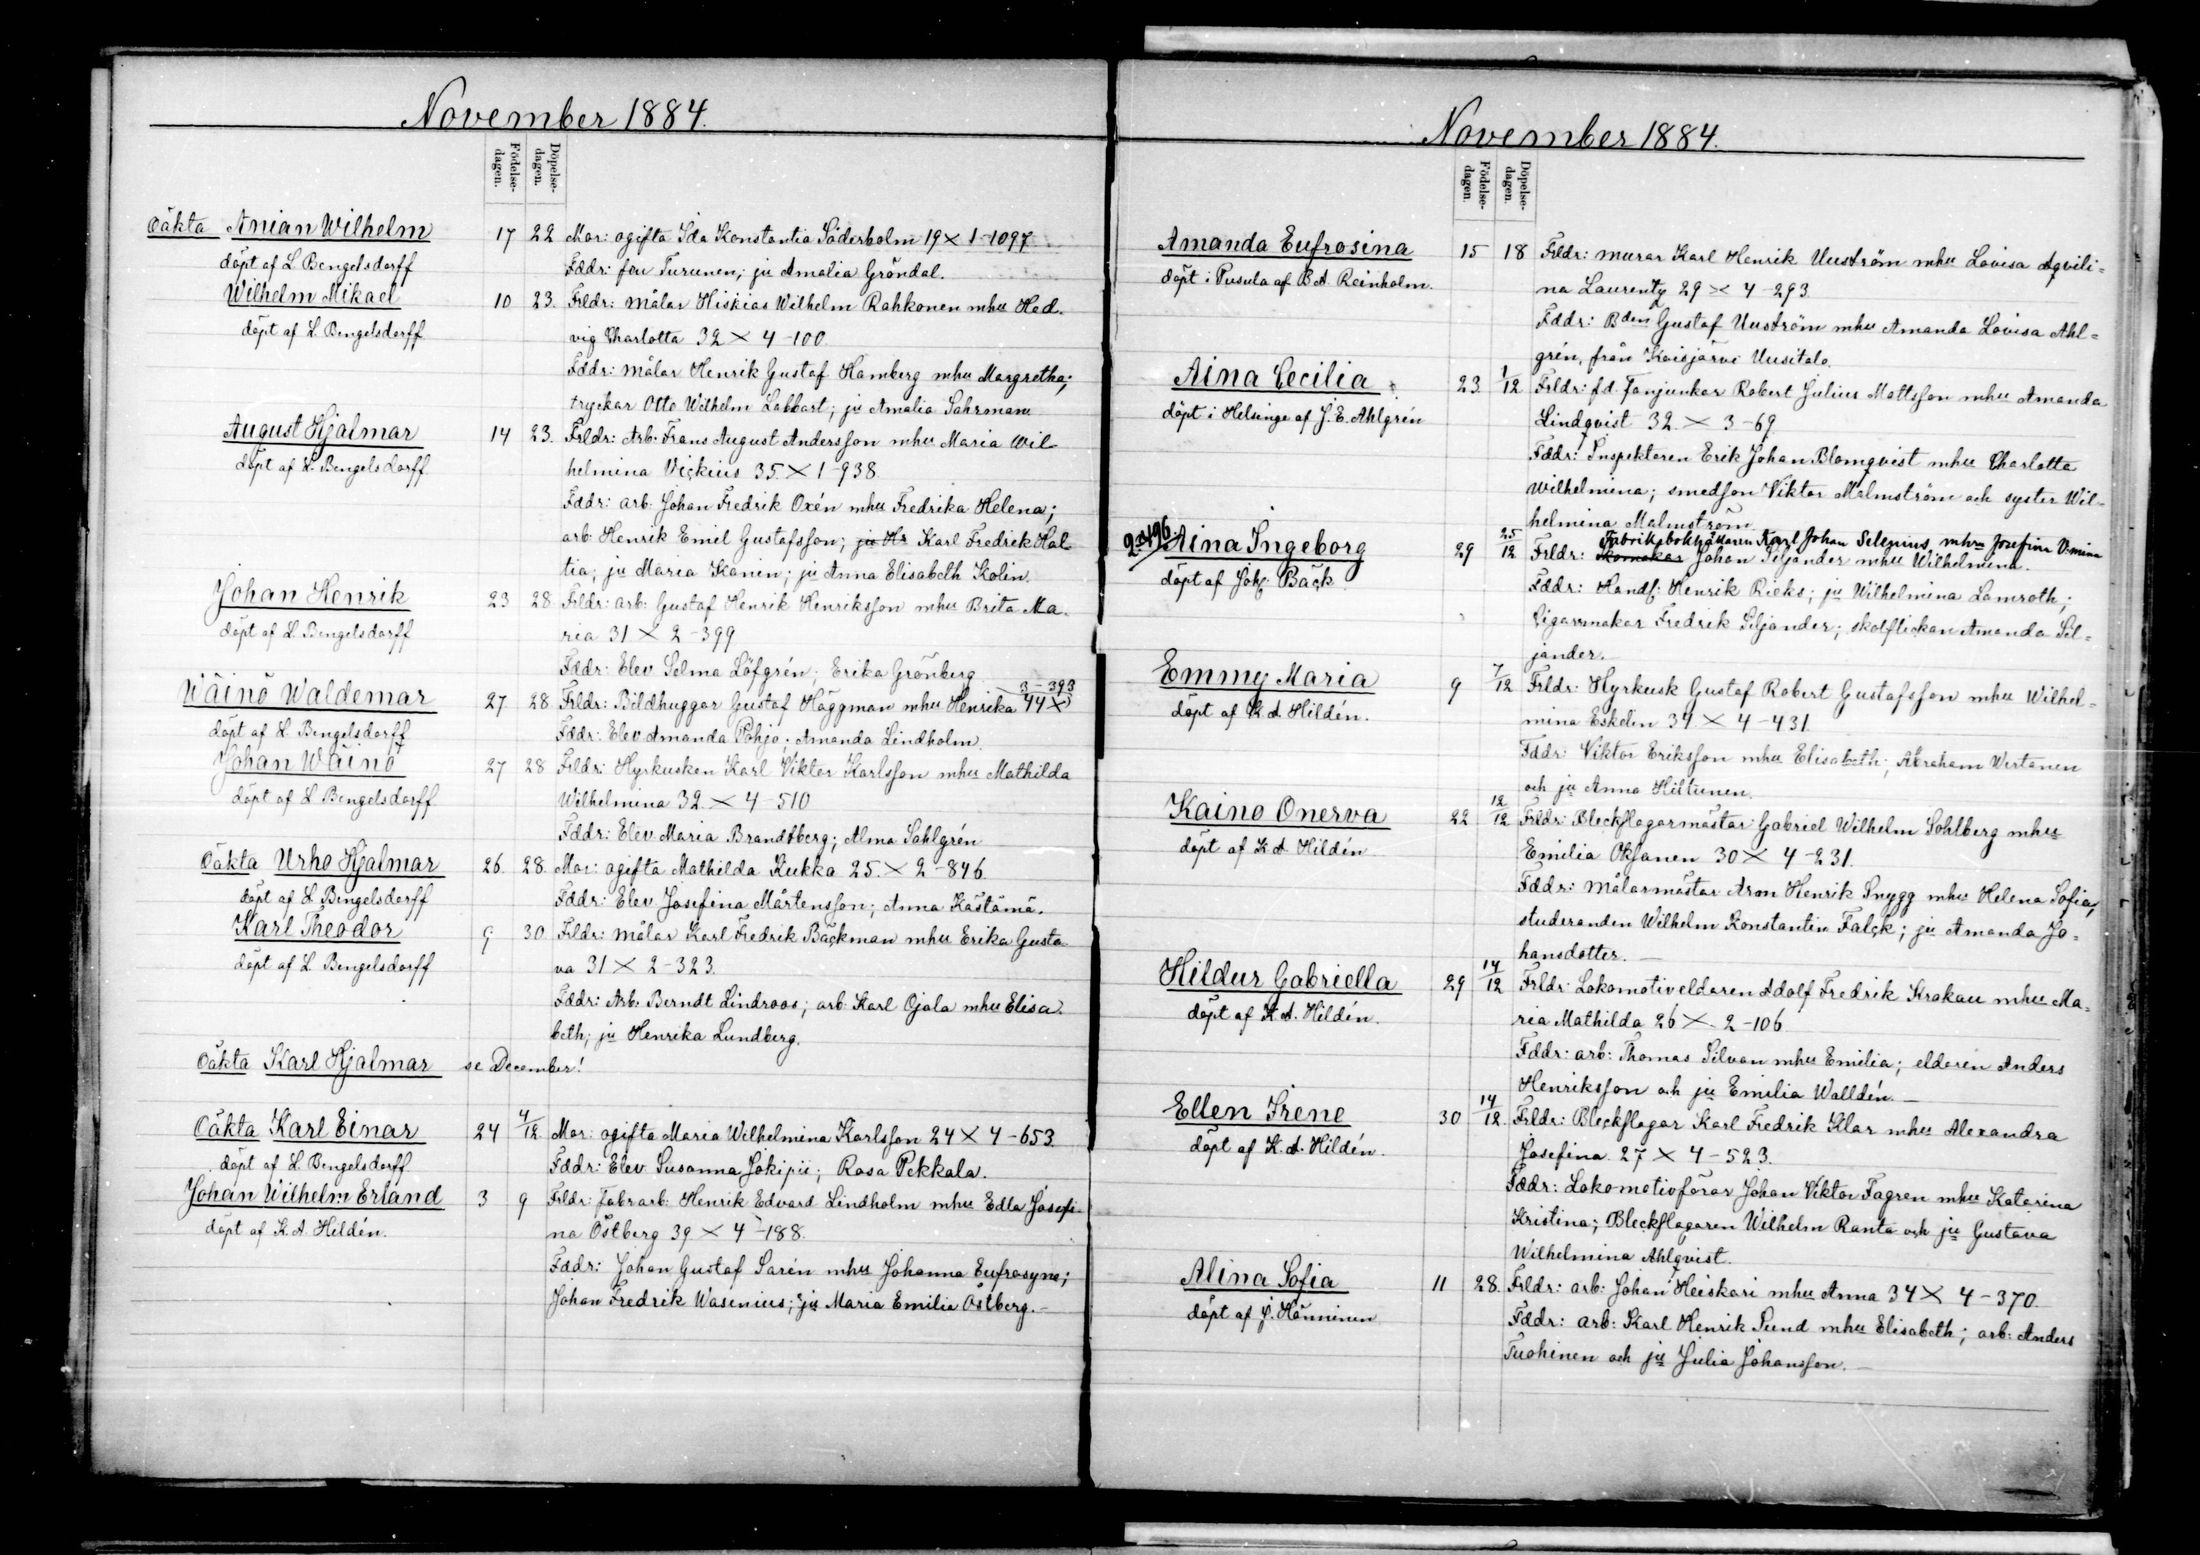 November 1884.
Födelse-
dagen.
Döpelse-
dagen.
Oäkta Anian Wilhelm 17 22 Mor: ogifta Ida Konstantia Söderholm 19 X 1-1097
döpt af L. Bengelsdorff Fddr: fru Turunen; ju Amalia Gröndal.
Wilhelm Mikael 10 23. Frldr: målar Hiskias Wilhelm Rahkonen mhu Hed-
döpt af L. Bengelsdorff vig Charlotta 32 X 4-100
Fddr: målar Henrik Gustaf Hamberg mhu Margretha;
tryckar Otto Wilhelm Labbart; ju Amalia Sahrman
August Hjalmar 14 23. Frldr: Arb: Frans August Andersson mhu Maria Wil
döpt af L. Bengelsdorff helmina Vickius 35 X 1-938
Fddr: arb. Johan Fredrik Oxén mhu Fredrika Helena;
arb Henrik Emil Gustafsson; ju Hr Karl Fredrik Hal
tia; ju Maria Kanin; ju Anna Elisabeth Kolin.
Johan Henrik 23 28 Frldr: arb: Gustaf Henrik Henriksson mhu Brita Ma-
döpt af L Bengelsdorff ria 31 X 2-399
Fddr: Elev Selma Löfgrén; Erika Grönberg
Wäinö Waldemar 27 28 Frldr: Bildhuggar Gustaf Häggman mhu Henrika 44 X 3-393
döpt af L Bengelsdorff Fddr: Elev Amanda Pohjo; Amanda Lindholm.
Johan Wäinö 27 28 Frldr: Hyrkusken Karl Viktor Karlsson mhu Mathilda
döpt af L Bengelsdorff Wilhelmina 32. X 4-510
Fddr: Elev Maria Brandtberg; Alma Sahlgrén
Oäkta Urho Hjalmar 26. 28. Mor: ogifta Mathilda Kukka 25. X 2-846.
döpt af L Bengelsdorff Fddr: Elev Josefina Mårtensson; Anna Kästämä.
Karl Theodor 9 30 Frldr: målar Karl Fredrik Bäckman mhu Erika Gusta
döpt af L Bengelsdorff va 31 X 2-323.
Fddr: Arb: Berndt Lindroos; arb: Karl Ojala mhu Elisa-
beth; ju Henrika Lundberg.
Oäkta Karl Hjalmar se December!
Oäkta Karl Einar 24 4/12 Mor: ogifta Maria Wilhelmina Karlsson 24 X 4-653
döpt af L Bengelsdorff Fddr: Elev Susanna Jokipii; Rosa Pekkala.
Johan Wilhelm Erland 3 9 Frldr: fabrarb: Henrik Edvard Lindholm mhu Edla Josefi-
döpt af K. A Hildén. na Östberg 39 X 4-188.
Fddr: Johan Gustaf Sarén mhu Johanna Eufrosyne;
Johan Fredrik Wasenius; ju Maria Emilia Östberg.
November 1884.
Födelse-
dagen.
Döpelse-
dagen.
Amanda Eufrosina 15 18 Frldr: murar Karl Henrik Uuström mhu Lovisa Aqvili-
döpt i Pusula af B A. Reinholm. na Laurenty 29 X 4-293
Fddr: Bden Gustaf Uuström mhu Amanda Lovisa Ahl-
grén, från Koisjärvi Uusitalo.
Aina Cecilia 23 1/12 Frldr: fd. Fanjunkar Robert Julius Mattsson mhu Amanda
döpt i Helsinge af J. E. Ahlgrén Lindqvist 32 X 3-69
Fddr: Inspektoren Erik Johan Blomqvist mhu Charlotta
Wilhelmina; smedson Viktor Malmström och syster Wil-
helmina Malmström
Fabriksbokhållaren Karl Johan Selenius mhu Josefina V:mina
Aina Ingeborg 29 25/12 Frldr: Skomakar Johan Siljander mhu Wilhelmina.
döpt af Joh. Bäck. Fddr: Handl: Henrik Rieks; ju Wilhelmina Lamroth;
Cigarrmakar Fredrik Siljander; skolflickan Amanda Sil-
jander.
Emmy Maria 9 7/12 Frldr: Hyrkusk Gustaf Robert Gustafsson mhu Wilhel-
döpt af K A. Hildén. mina Eskelin 34 X 4-431
Fddr: Viktor Eriksson mhu Elisabeth; Abraham Wirtanen
och ju Anna Hiltunen.
Kaino Onerva 22 12/12 Frldr: Bleckslagarmästar Gabriel Wilhelm Sohlberg mhu
döpt af K A Hildén Emilia Oksanen 30 X 4-231.
Fddr: Målarmästar Aron Henrik Snygg mhu Helena Sofia;
studeranden Wilhelm Konstantin Falck; ju Amanda Jo-
hansdotter.
Hildur Gabriella 29 14/12 Frldr: Lokomotiveldaren Adolf Fredrik Krakau mhu Ma-
döpt af K A. Hildén. ria Mathilda 26 X 2-106
Fddr: arb: Thomas Silvan mhu Emilia; eldaren Anders
Henriksson och ju Emilia Walldén.
Ellen Irene 30 14/12 Frldr: Bleckslagar Karl Fredrik Klar mhu Alexandra
döpt af K. A. Hildén. Josefina 27 X 4-523.
Fddr: Lokomotivförar Johan Viktor Fagren mhu Katarina
Kristina; Bleckslagaren Wilhelm Ranta och ju Gustava
Wilhelmina Ahlqvist.
Alina Sofia 11 28. Frldr: arb: Johan Heiskari mhu Anna 34 X 4-370.
döpt af J. Hänninen Fddr: arb: Karl Henrik Sund mhu Elisabeth; arb: Anders
Tuohinen och ju Julia Johansson.